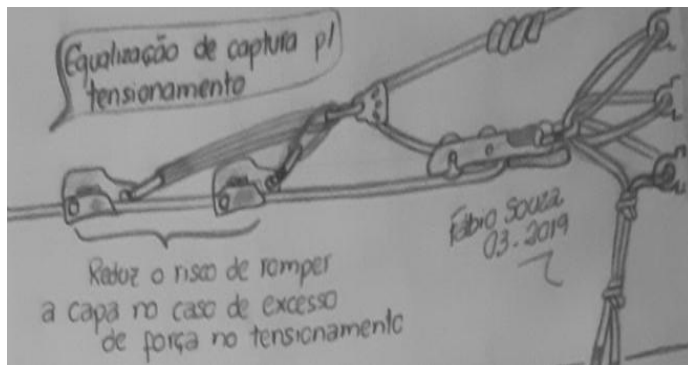 Equalização de captura p/
tensionamento
Reduz o risco de romper
a capa no caso de excesso
de força no tensionamento
Fábio Souza
03-2019